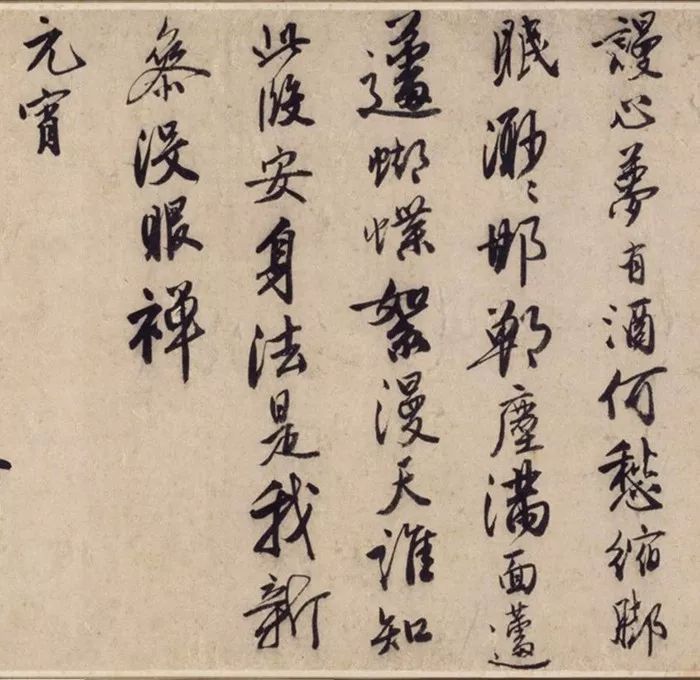 謾心夢有酒何愁縮脚
眠渺〻邯鄲塵滿面蘧
蘧蝴蝶絮漫天誰知
此段安身法是我新
叅沒眼禪
元宵